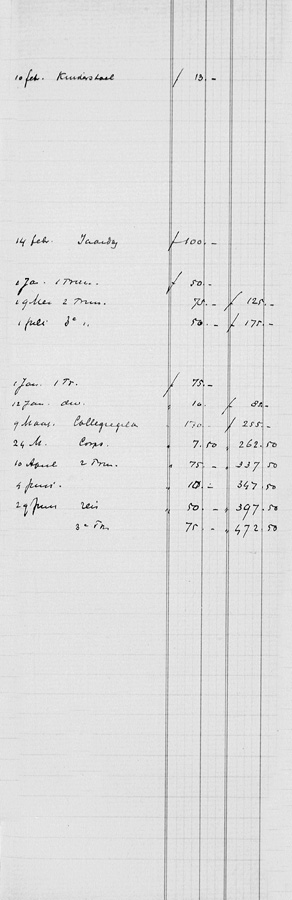 10 febr. Kinderstoel ƒ 13.-
14 febr. ƒ 100.-
2 Jan. 1 Trim. ƒ 50.-
19 Mei 2 Trim. 75.- ƒ 125.-
1 Juli 3e " 50.- ƒ 175.-
1 Jan. 1 Tr. ƒ 75.-
12 Jan. div. " 10. ƒ 85.-
9 Maart Collegegeld 170.- ƒ 255.-
24 M. Corps. " 7.50 " 262.50
10 April 2 Trim. " 75.- " 337.50
5 Juni. " 10.- " 347.50
29 Juni reis " 50.- " 397.50
3e Tr. 75.- " 472.50